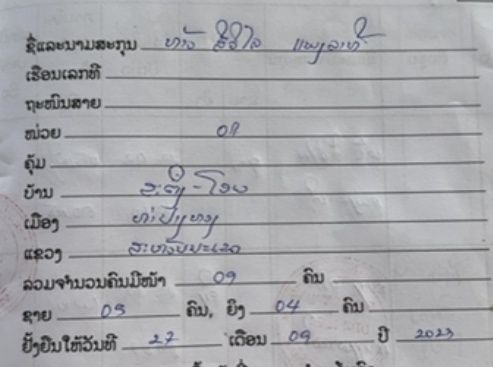 ຊື່ແລະນາມສະກຸນ ທ້າວ
ເຮືອນເລກທີ
ຖະໜົນສາຍ
ໜ່ວຍ 01
ຄຸ້ມ
ບ້ານ
ເມືອງ
ແຂວງ ສະຫວັນນະເຂດ
ລວມຈຳນວນຄົນມີໜ້າ 09 ຄົນ
ຊາຍ 05 ຄົນ, ຍິງ 04 ຄົນ
ຢັ້ງຢືນໃຫ້ວັນທີ 27 ເດືອນ 09 ປີ 2023